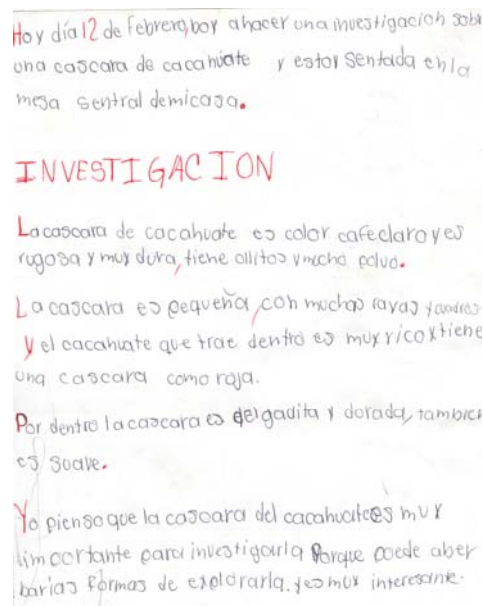 Hoy día 12 de febrero, boy a hacer una investigacion sobr
una cascara de cacahuate y estoy sentada en la
mesa sentral de mi casa.
INVESTIGACION
La cascara de cacahuate es color cafe claro y es
rugosa y muy dura, tiene ollitos y mucho polvo.
La cascara es pequeña, con muchas rayas y
y el cacahuate que trae dentro es muy rico y tiene
una cascara como roja.
Por dentro la cascara es delgadita y dorada, tambien
es suave.
Yo pienso que la cascara del cacahuate es muy
importante para investigarla Porque puede aber
barias formas de explorarla. y es muy interesante.